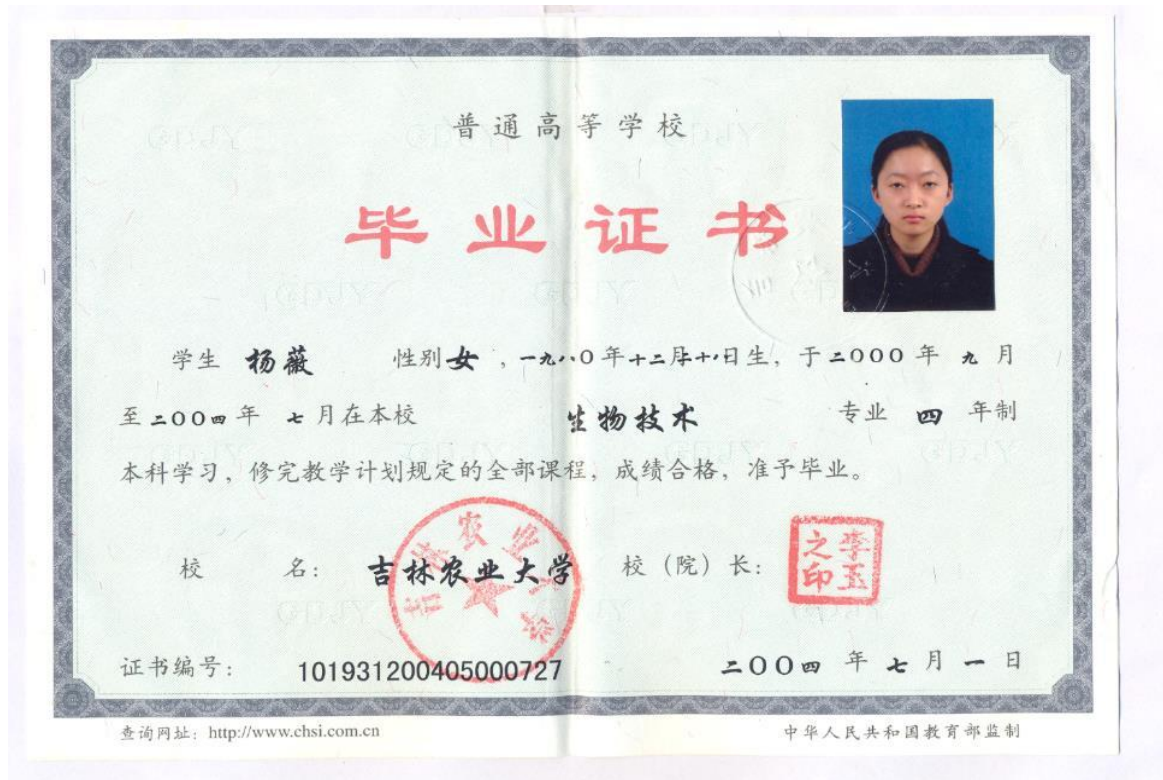 普通高等学校
毕业证书
学生 杨薇 性别 女 ,一九八〇年十二月十八日生, 于二〇〇〇年 九 月
至二〇〇四年 七 月在本校 生物技术 专业 四 年制
本科学习, 修完教学计划规定的全部课程, 成绩合格, 准予毕业。
校 名: 吉林农业大学 校 (院) 长: 李玉之印
吉林农业大学
证书编号: 101931200405000727 二〇〇四 年 七 月 一 日
查询网址: http://www.chsi.com.cn 中华人民共和国教育部监制